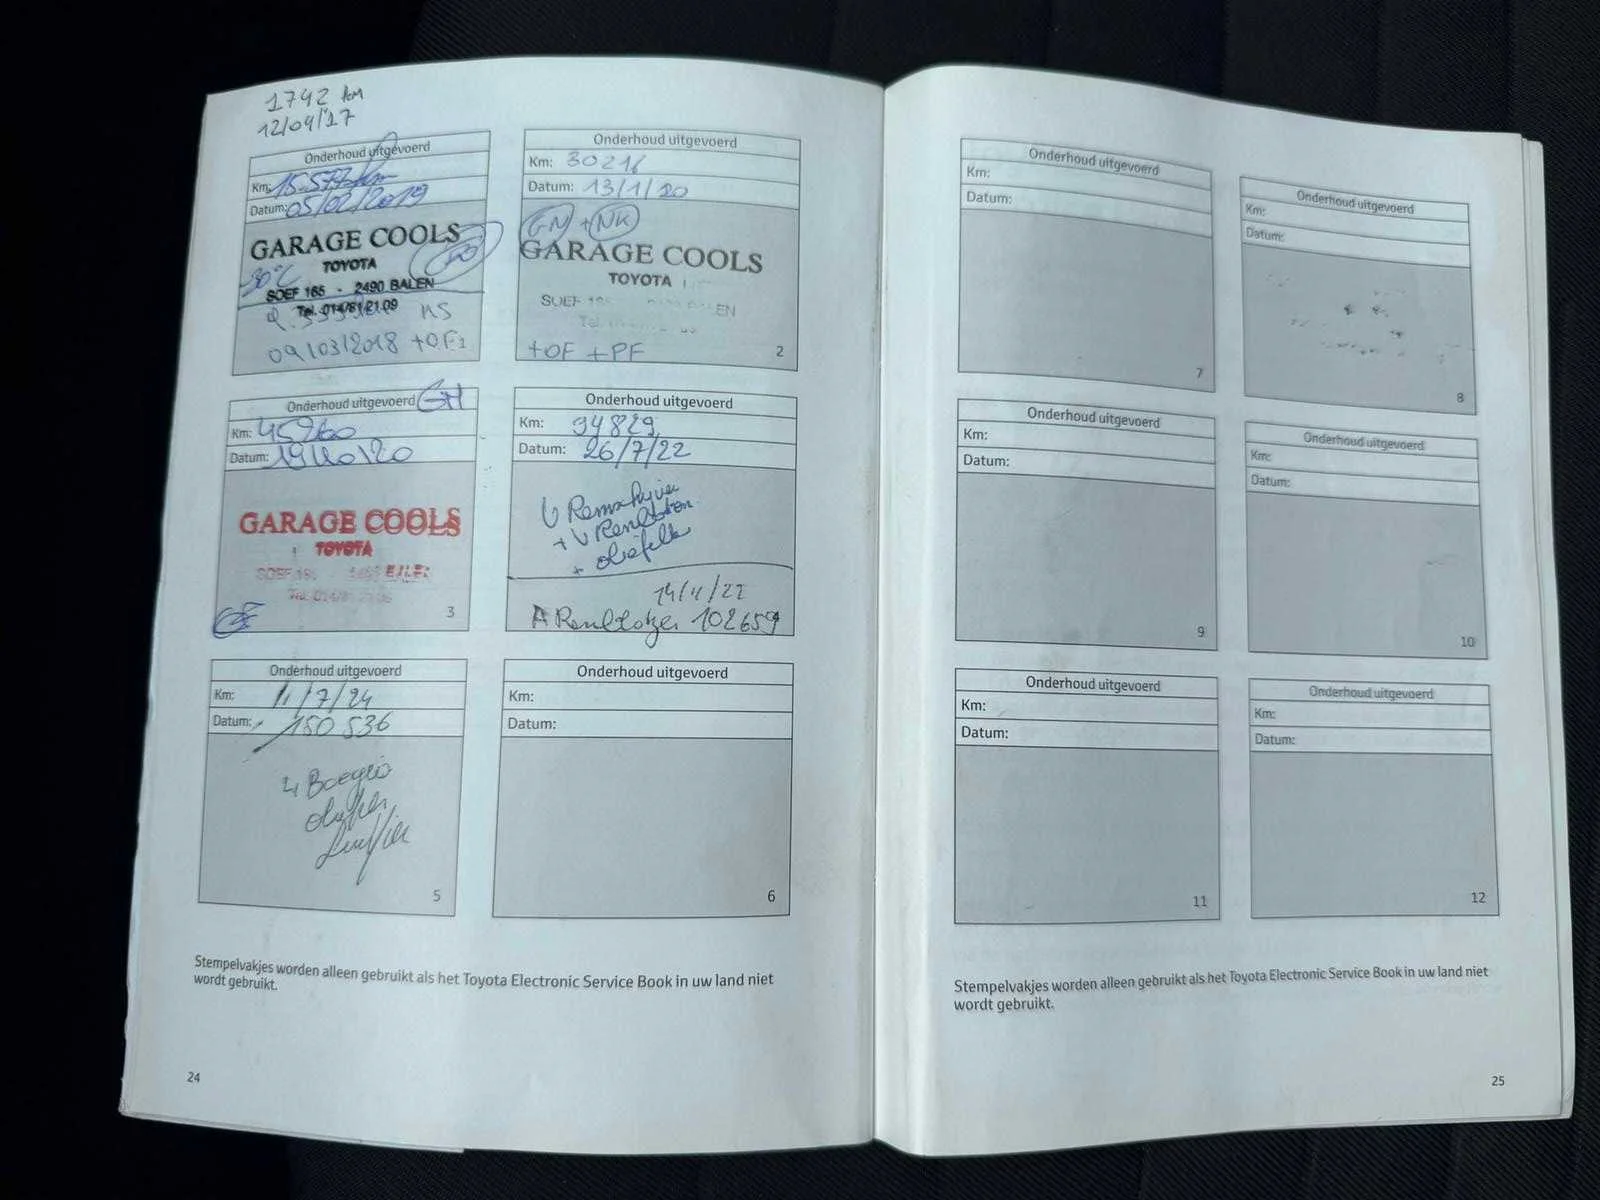 1742 km
12/04/17
Onderhoud uitgevoerd
Km: 15.577 km
Datum: 05/02/2019
GARAGE COOLS
TOYOTA
30°C
SOEF 165 - 2490 BALEN
Tel. 014/81.21.09
09/03/2018 +OF
Onderhoud uitgevoerd
Km: 30216
Datum: 13/1/20
GN + NK
GARAGE COOLS
TOYOTA
SOEF
+OF +PF
2
Onderhoud uitgevoerd GH
Km: 45260
Datum: 19/10/20
GARAGE COOLS
TOYOTA
OF
3
Onderhoud uitgevoerd
Km: 94829
Datum: 26/7/22
V Remschijven
+ V Remblokken
+ oliefilter
102659
Onderhoud uitgevoerd
Km: 11/7/24
Datum: 150 536
4 Bougie
5
Onderhoud uitgevoerd
Km:
Datum:
6
Stempelvakjes worden alleen gebruikt als het Toyota Electronic Service Book in uw land niet
wordt gebruikt.
24
Onderhoud uitgevoerd
Km:
Datum:
7
Onderhoud uitgevoerd
Km:
Datum:
8
Onderhoud uitgevoerd
Km:
Datum:
9
Onderhoud uitgevoerd
Km:
Datum:
10
Onderhoud uitgevoerd
Km:
Datum:
11
Onderhoud uitgevoerd
Km:
Datum:
12
Stempelvakjes worden alleen gebruikt als het Toyota Electronic Service Book in uw land niet
wordt gebruikt.
25